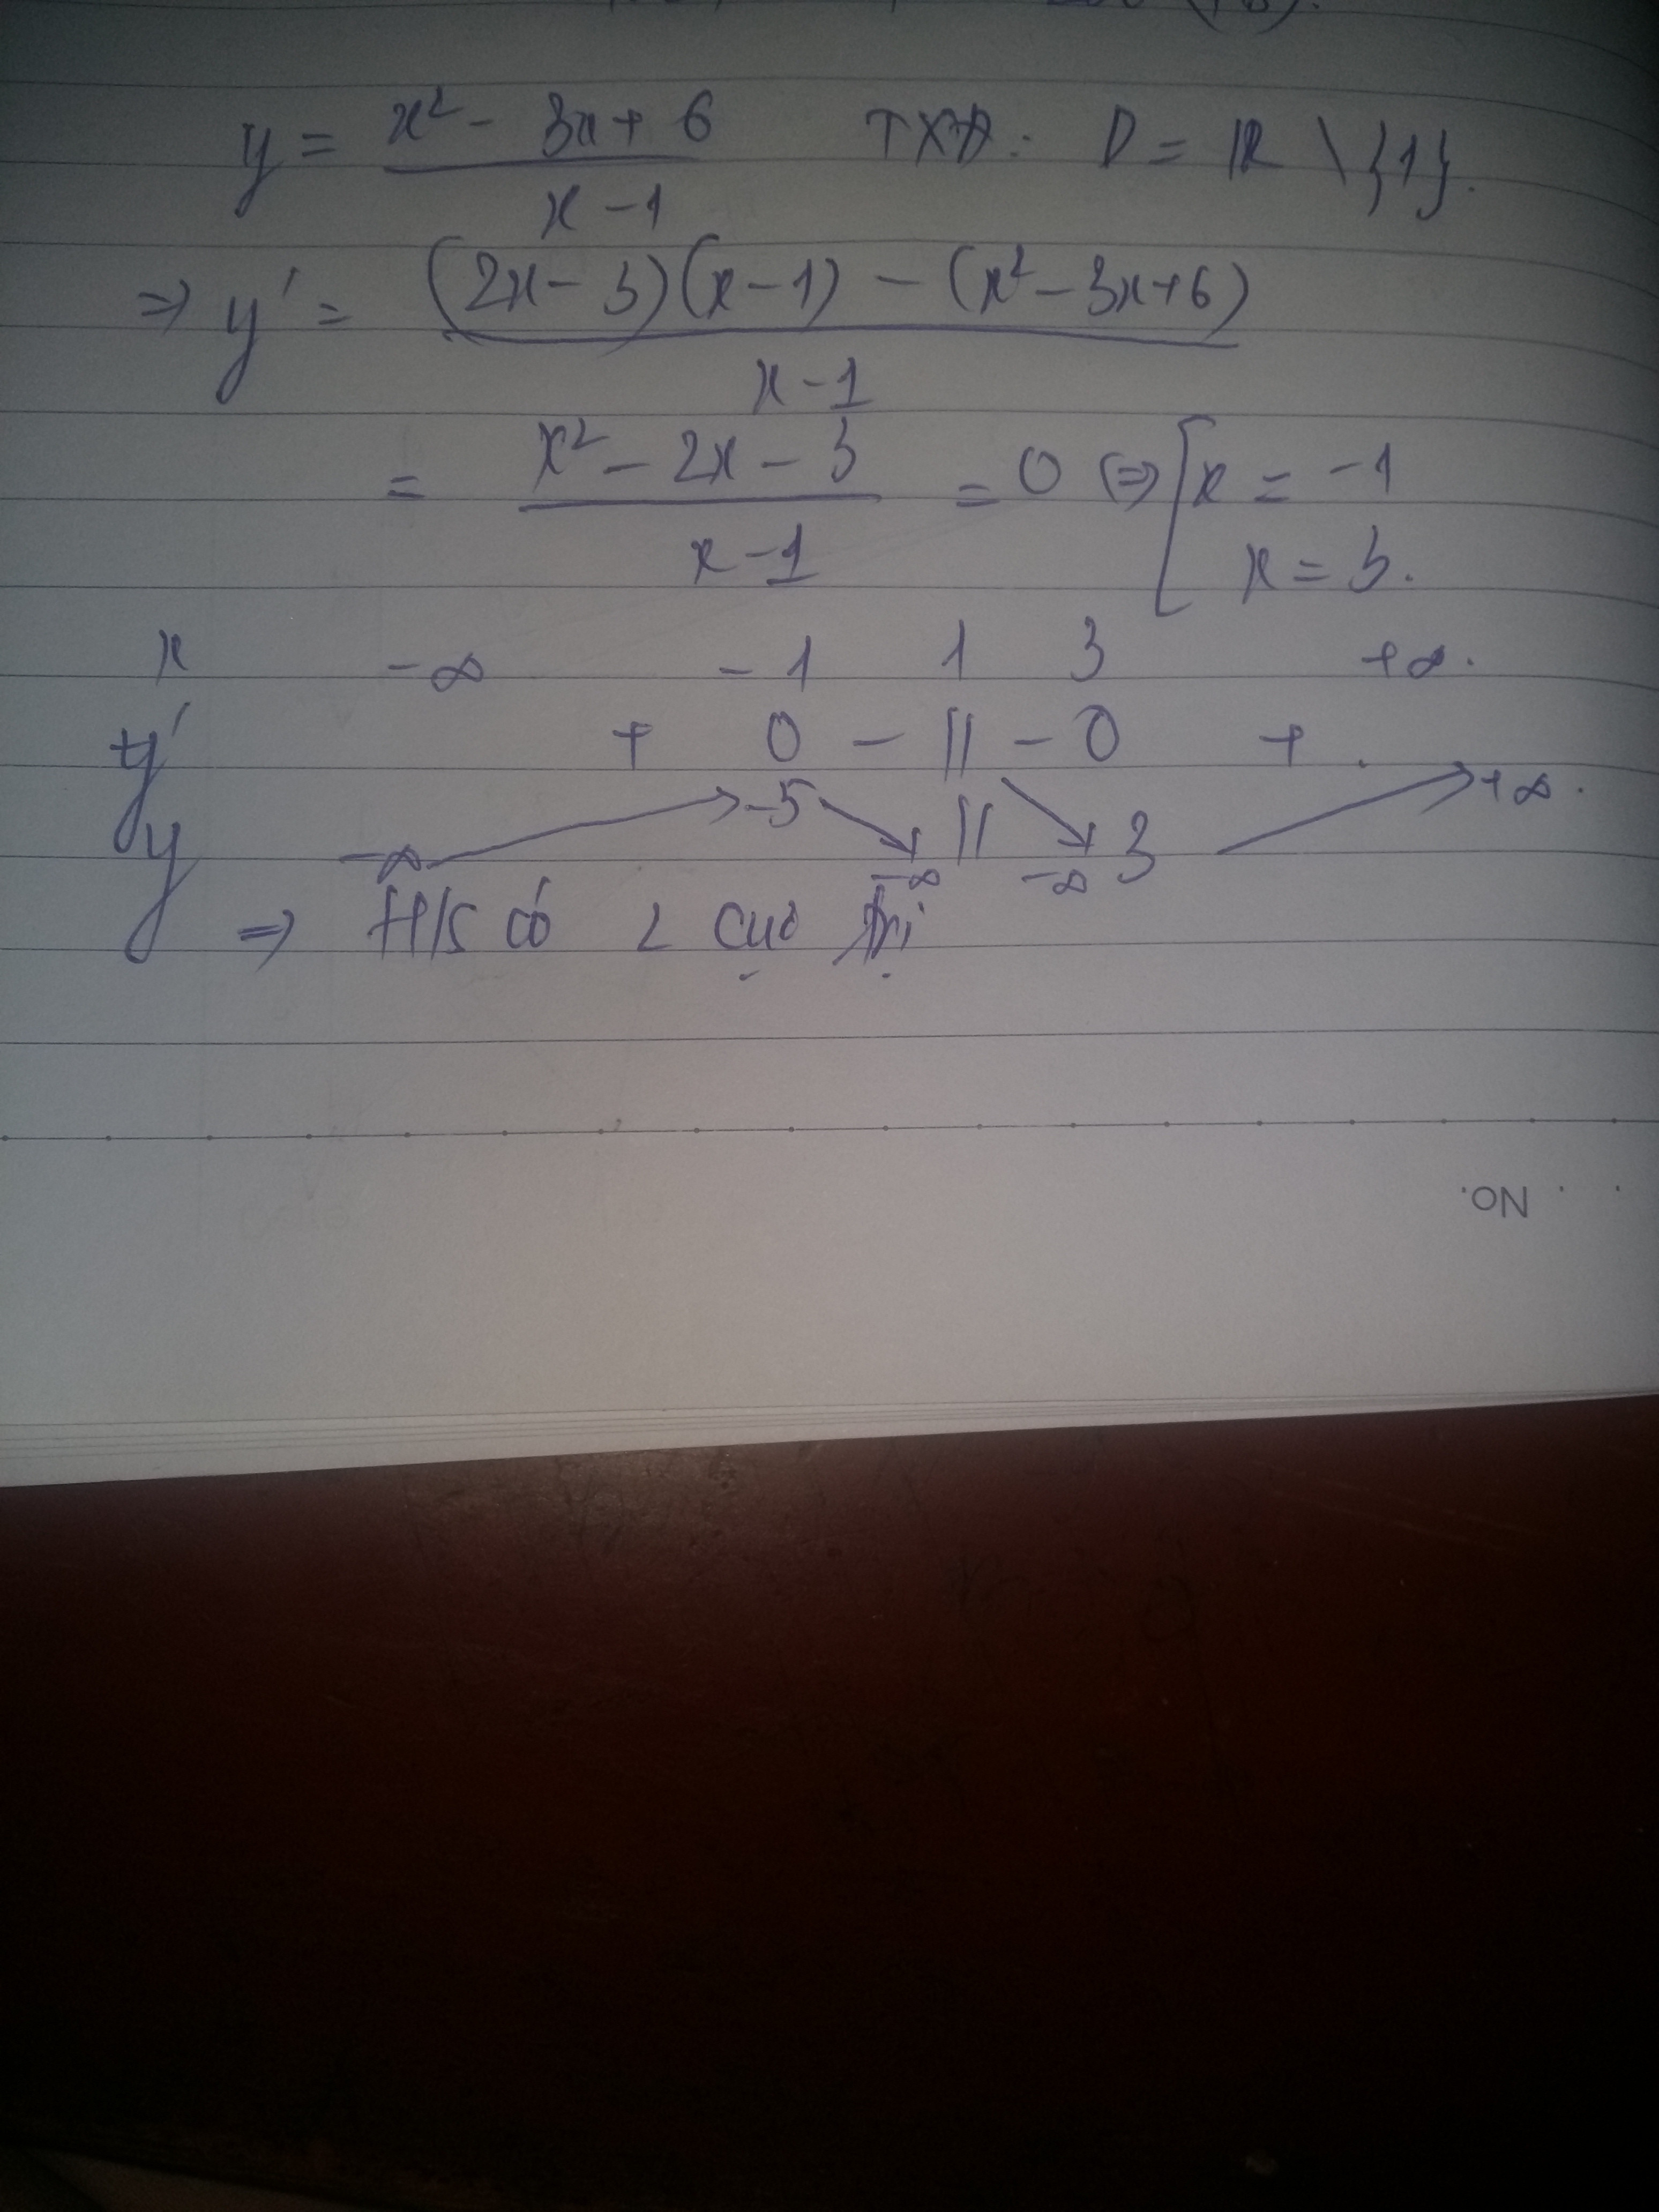 y = x² - 3x + 6 / x - 1 TXĐ: D = ℝ \ {1}.
⇒ y' = (2x - 3)(x - 1) - (x² - 3x + 6) / x - 1
= x² - 2x - 3 / x - 1 = 0 ⇔ [ x = -1
x = 3.
x -∞ -1 1 3 +∞.
y' + 0 - || - 0 +
y -∞ -5 -∞ || -∞ 3 +∞.
⇒ H/S có 2 cực trị
No.